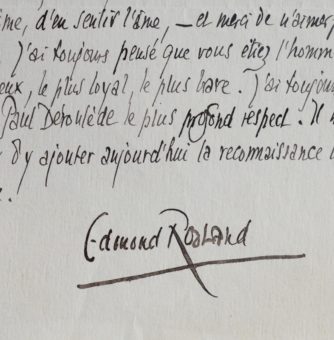 me, d'en sentir l'âme, — et merci de
J'ai toujours pensé que vous étiez l'homm
eux, le plus loyal, le plus
J'ai toujour
Paul Déroulède le plus profond respect. Il
d'y ajouter aujourd'hui la reconnaissance
Edmond Rostand